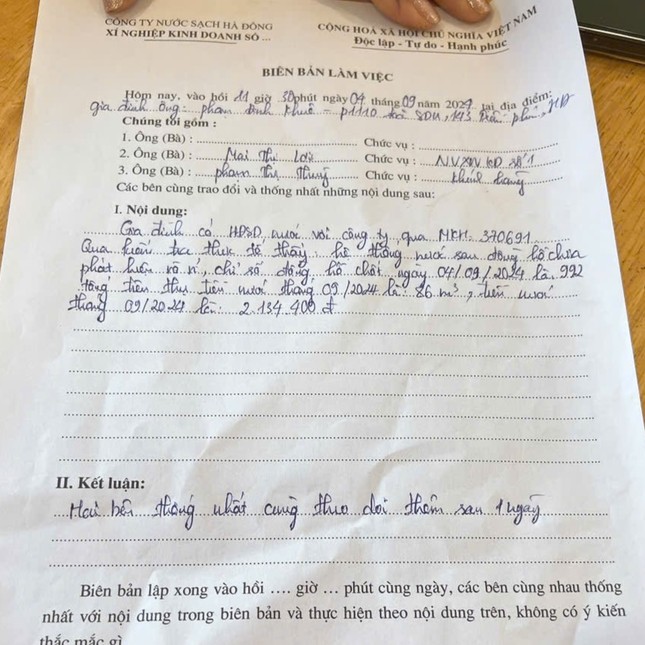 CÔNG TY NƯỚC SẠCH HÀ ĐÔNG
XÍ NGHIỆP KINH DOANH SỐ ...
CỘNG HOÀ XÃ HỘI CHỦ NGHĨA VIỆT NAM
Độc lập - Tự do - Hạnh phúc
BIÊN BẢN LÀM VIỆC
Hôm nay, vào hồi 11 giờ 30 phút ngày 04 tháng 09 năm 2024 tại địa điểm:
gia đình ông: phạm đình Khuê - p1110 toà SDU, 143 Trần phú, HĐ
Chúng tôi gồm :
1. Ông (Bà) : Chức vụ :
2. Ông (Bà) : Mai Thị Chức vụ :
3. Ông (Bà) : phạm Thị Chức vụ : khách hàng
Các bên cùng trao đổi và thống nhất những nội dung sau:
I. Nội dung:
Gia đình có HĐSD nước với công ty, qua MKH: 370691
Qua kiểm tra thực tế thấy: hệ thống nước sau đồng hồ chưa
phát hiện rò rỉ, chỉ số đồng hồ chốt ngày 04/09/2024 là 992
tổng tiêu thụ tiền nước tháng 09/2024 là: 86 m³, tiền nước
tháng 09/2024 là: 2.134.400 đ
II. Kết luận:
Hai bên thống nhất cùng theo dõi thêm sau 1 ngày
Biên bản lập xong vào hồi .... giờ ... phút cùng ngày, các bên cùng nhau thống
nhất với nội dung trong biên bản và thực hiện theo nội dung trên, không có ý kiến
thắc mắc gì